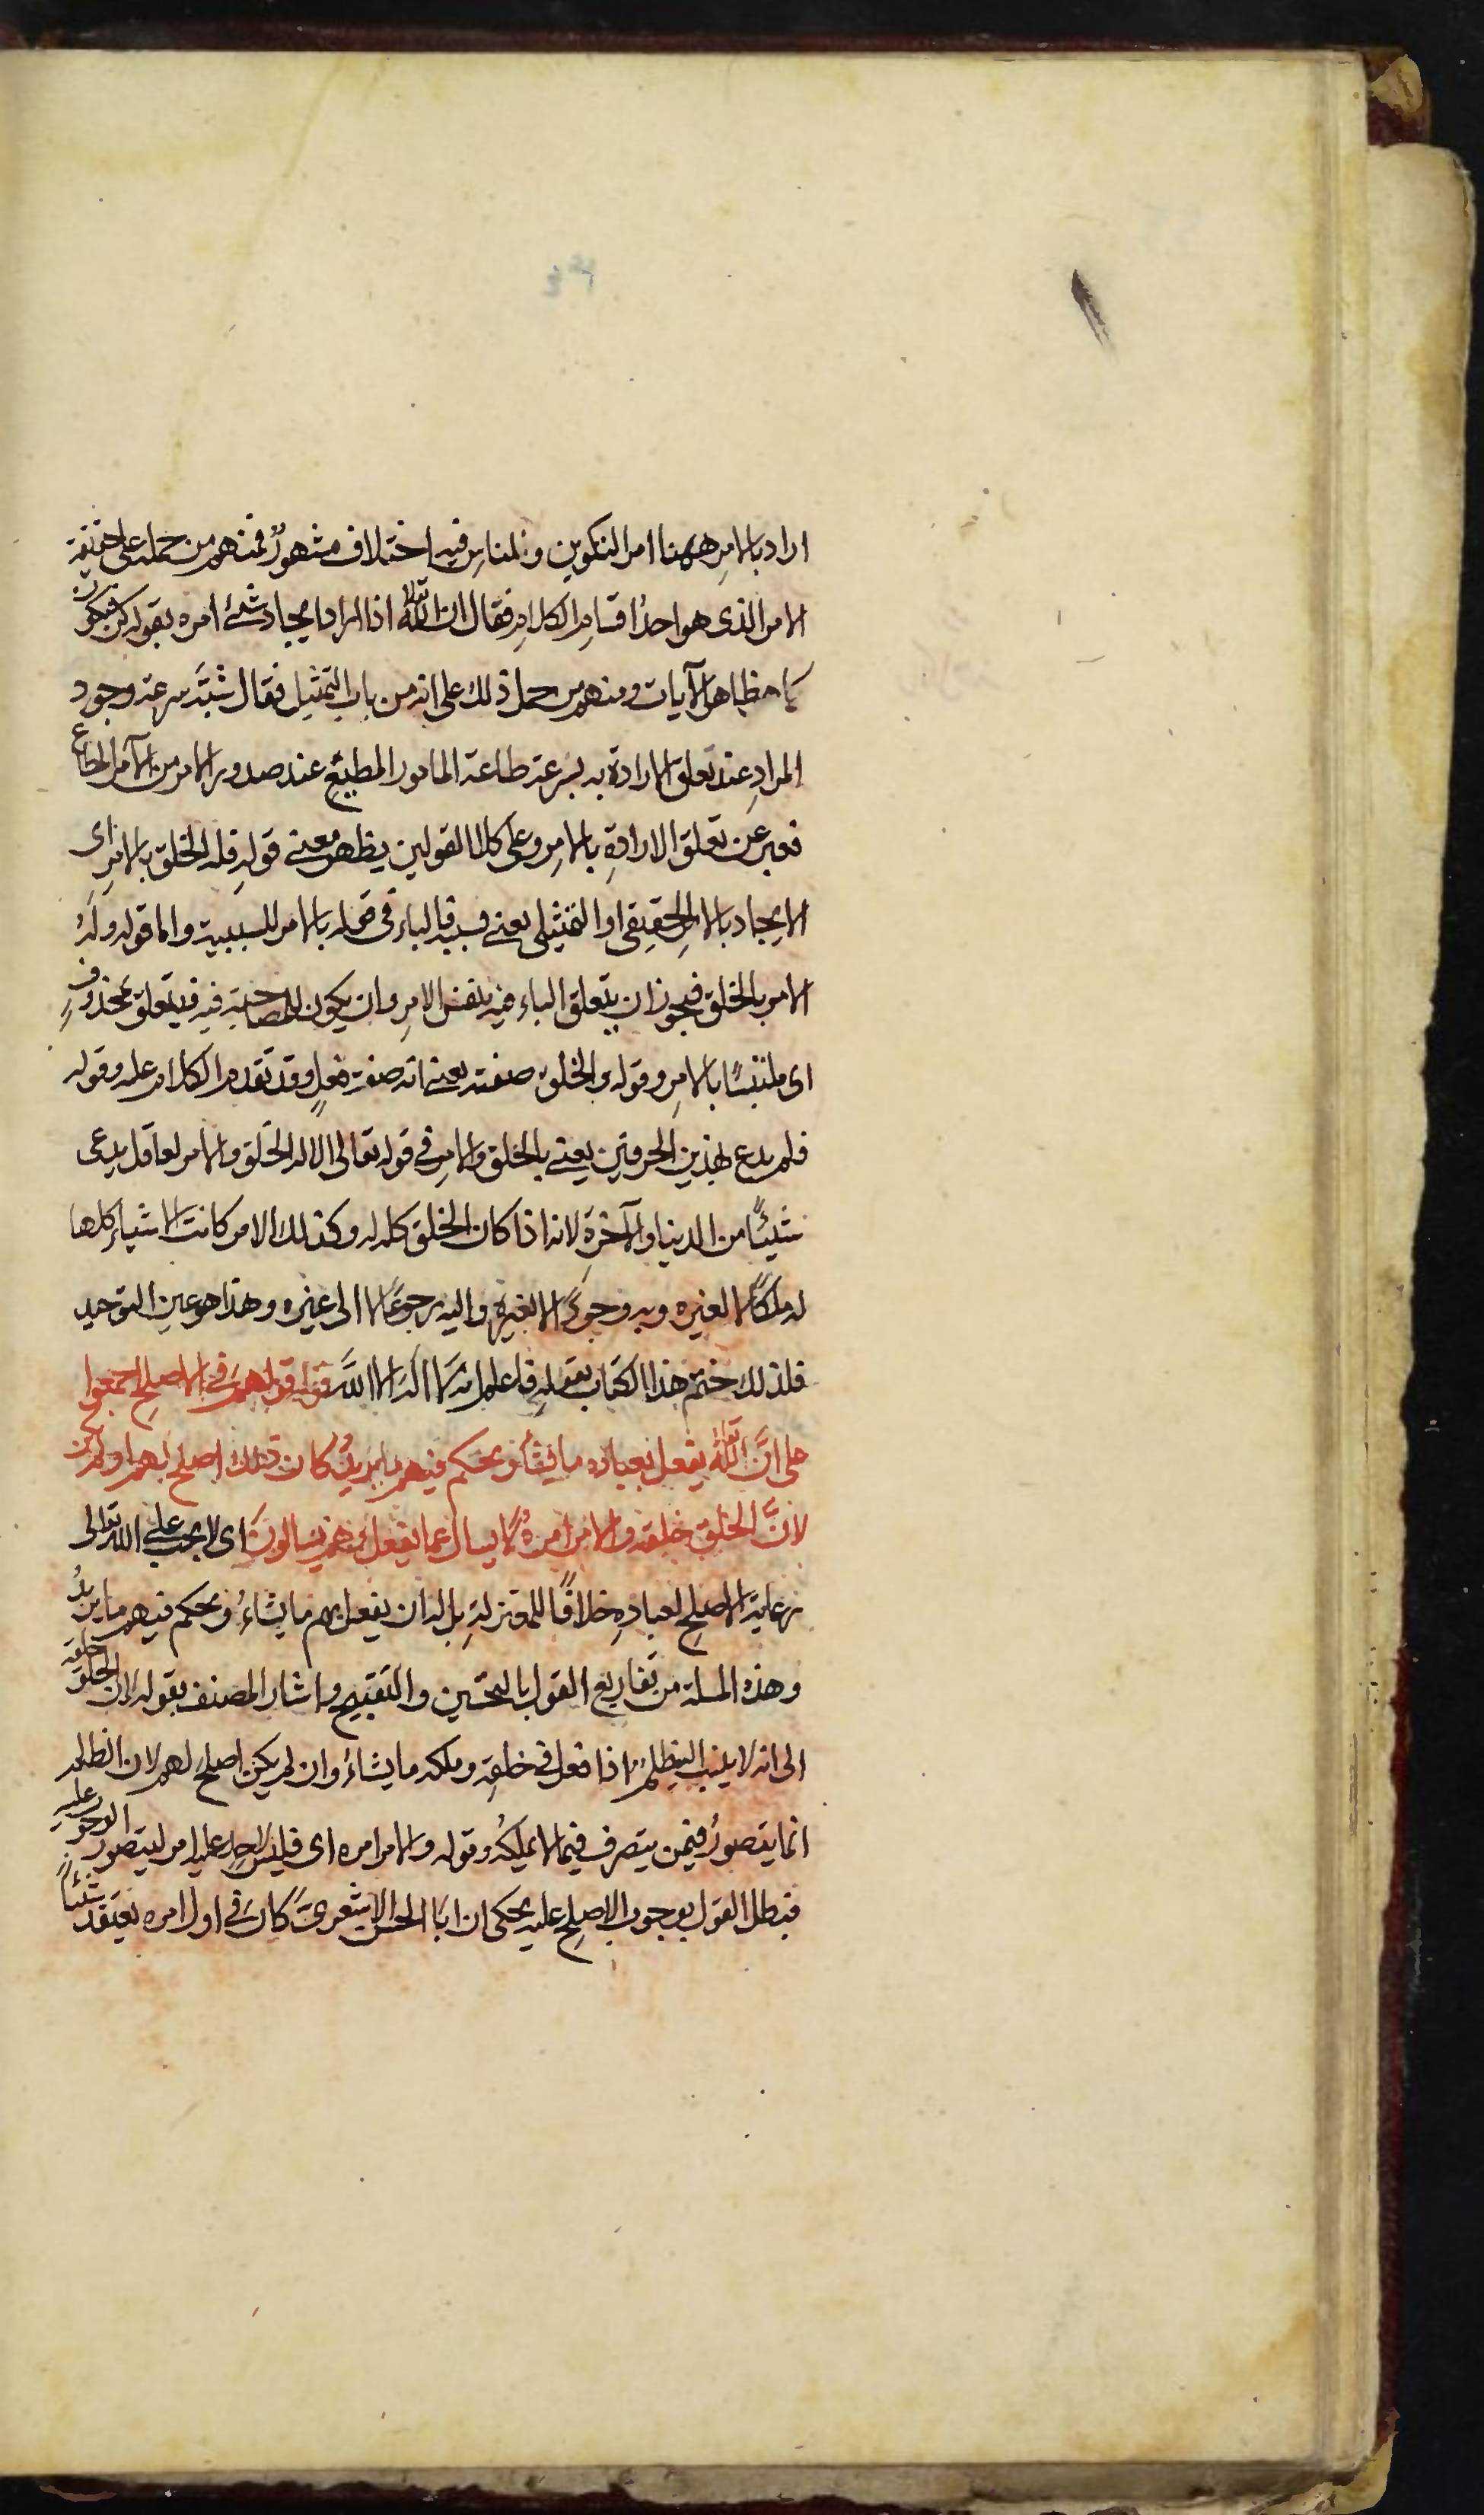 اراد بالامرِ ههنا امر التكوين وللناسِ فيه اختلاف مشهورٌ فمنهم من حمله على حقيقة
الامر الذى هو احدُ اقسامِ الكلامِ فقال ان اللّٰه تعالى اذا اراد ايجاد شئ امره بقوله كن فيكون
كما هو ظاهر الآيات ومنهم من حمل ذلك على انه من باب التمثيل فقال شبَّه سرعة وجود
المرادِ عند تعلق الارادة به بسرعة طاعة المامور المطيعِ عند صدور الامر من الآمر المطاع
فعبر عن تعلق الارادةِ بالامرِ وعلى كلا القولين يظهر معنى قوله فله الخلق بالامرِ اى
الايجاد بالامرِ الحقيقى او التمثيلى يعنى بسببه فالباء فى قوله بالامر للسببية واما قوله ولَهُ
الامر بالخلق فيجوز ان يتعلق الباء فيه بنفس الامرِ وان يكون للمصاحبة فيه فيتعلق بمحذوفٍ
اى ملتبسًا بالامرِ وقوله والخلق صفته يعنى انه صفة فعلٍ وقد تقدم الكلام عليه وقوله
فلم يدع بهذين الحرفين يعنى بالخلق والامرِ فى قوله تعالى الا له الخلق والامر لعاقل يدعى
شيئًا من الدنيا والآخرةِ لانه اذا كان الخلق كله له وكذلك الامر كانت الاشياء كلها
له ملكًا لا لغيره وبه وجودًا لا بغيرهِ واليه رجوعًا لا الى غيره وهذا هو عين التوحيد
فلذلك ختم هذا الكتاب بقولهِ فاعلم انه لَا اله الا اللّٰهُ قوله قولهم فى الاصلح اجمعوا
على انَّ اللّٰه تعالى يفعل بعباده ما يشأ ويحكم فيهم بما يريدُ كان ذلك اصلح لهم او لم يكن
لانَّ الخلق خلقه والامر امرهُ لا يسال عما يفعل وهم يسالونَ اى لا يجب على الله تعالى
رعاية الاصلحِ لعبادهِ خلافًا للمعتزلةِ بل له ان يفعل بهم ما يشاءُ ويحكم فيهم ما يريدُ
وهذه المسلة من تفاريع القول بالتحسين والتقبيح واشار المصنف بقوله لان الخلق خلقه
الى انه لا ينسب اليه ظلمٌ اذا فعل فى خلقهِ وملكه ما يشاءُ وان لم يكن اصلحَ لهم لان الظلم
انما يتصورُ فيمن يتصرف فيما لا يملكهُ وقوله والامر امره اى فليس لاحدٍ عليه امر ليتصور الوجوب عليه
فبطل القول بوجوب الاصلحِ عليه يحكى ان ابا الحسن الاشعرىّ كان فى اول امره يعتقد شيئًا